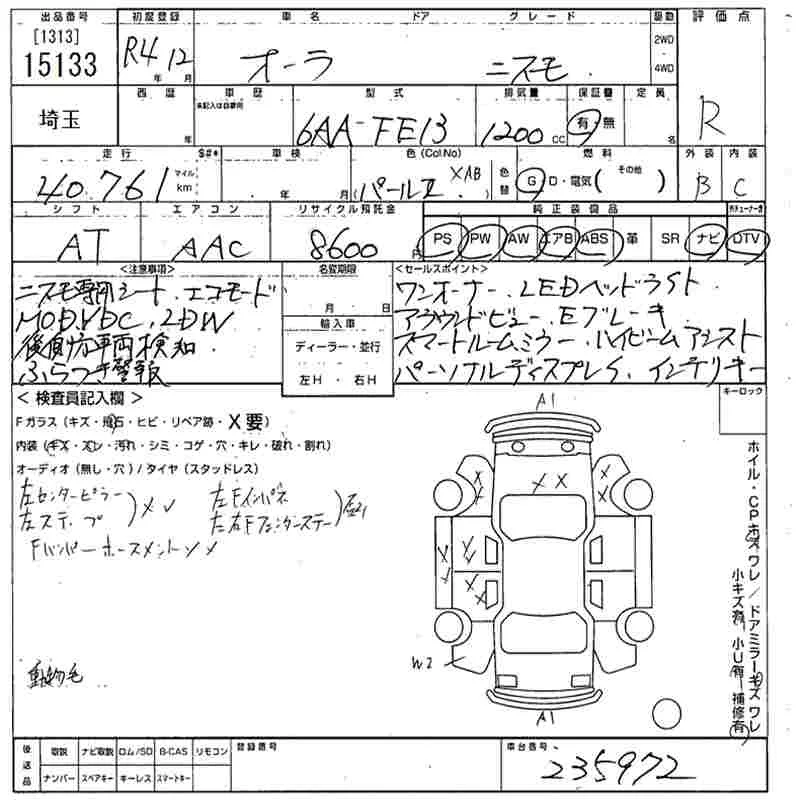 出品番号 初度登録 車名 ドア グレード 駆動 評価点
[1313]
15133 R4年 12月 オーラ ニスモ 2WD・4WD R
埼玉 西暦 年 車歴 未記入は自家用 型式 6AA-FE13 排気量 1200cc 保証書 有・無 定員 名
走行 $#* 車検 色(Col No) 燃料 外装 内装
40.761 マイル km 年 月 パールII XAB 色替 G D・電気( その他 ) B C
シフト エアコン リサイクル預託金 純正装備品
AT AAC 8600円 PS PW AW エアB ABS 革 SR ナビ DTV
<注意事項> 名変期限 <セールスポイント>
ニスモ専用シート.エコモード 月 日 ワンオーナー.LEDヘッドライト
MOD.VDC.LDW 輸入車 アラウンドビュー.Eブレーキ
後側方車両検知 ディーラー・並行 スマートルームミラー.ハイビームアシスト
ふらつき警報 左H・右H パーソナルディスプレイ.インテリキー
<検査員記入欄> キーロック
Fガラス(キズ・飛石・ヒビ・リペア跡・X要)
内装(キズ・スレ・汚れ・シミ・コゲ・穴・キレ・破れ・割れ)
オーディオ(無し・穴)/タイヤ(スタッドレス)
左センターピラー 左Fインパネ
左ステップ ) X レ 左右Fフェンダーステー
Fバンパーホースメント レ X
動物毛
A1
X X
X X
X X
X X
W2
A1
ホイル・CPキズワレ/ドアミラーキズワレ
小キズ有 小U有 補修有
後送品 取説 ナビ取説 ロム/SD B-CAS リモコン 登録番号 車台番号
ナンバー スペアキー キーレス スマートキー 235972